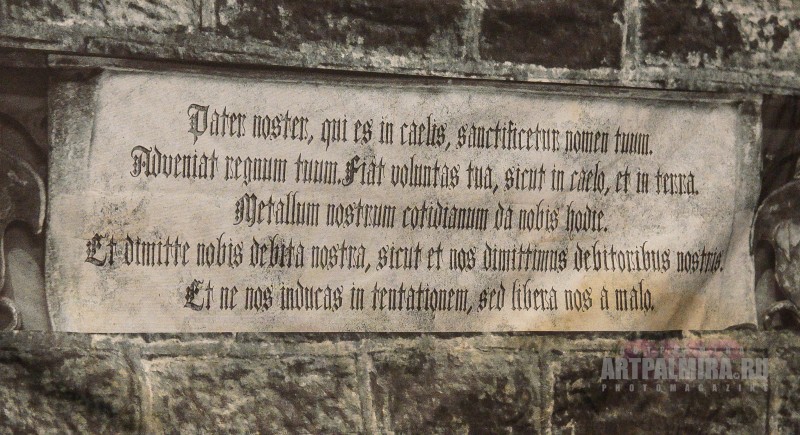 Pater noster, qui es in caelis, sanctificetur nomen tuum.
Adveniat regnum tuum. Fiat voluntas tua, sicut in caelo, et in terra.
Metallum nostrum cotidianum da nobis hodie.
Et dimitte nobis debita nostra, sicut et nos dimittimus debitoribus nostris.
Et ne nos inducas in tentationem, sed libera nos a malo.
ARTPALMIRA.RU
PHOTOMAGAZINE